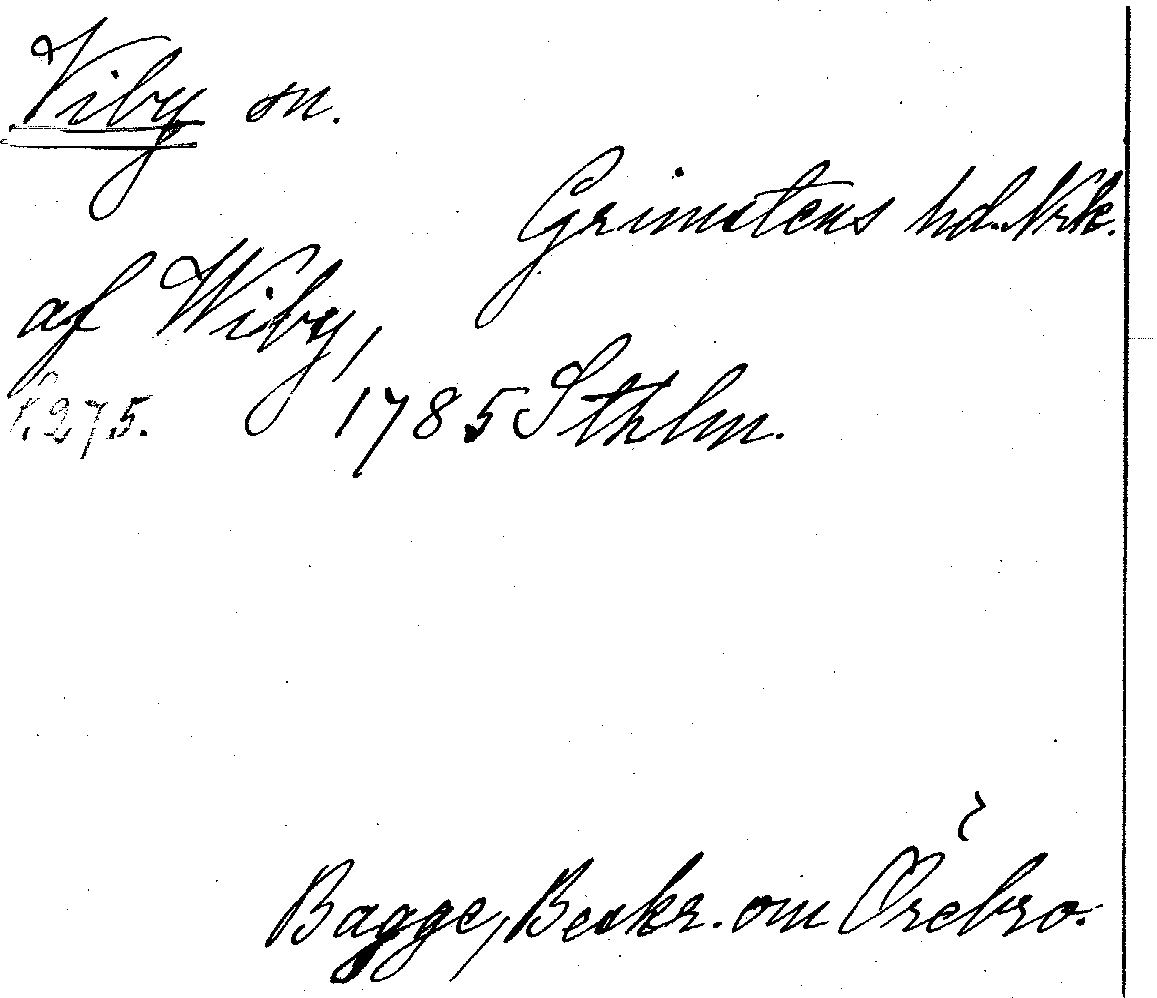 Viby sn.
Grimstens hd. Nrk.
af Wiby,
s. 275. 1785 Sthlm.
Bagge, Beskr. om Örebro.